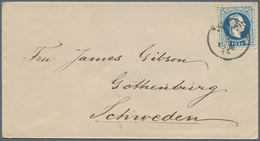 Frau James Gibson
Gothenburg
Schweden